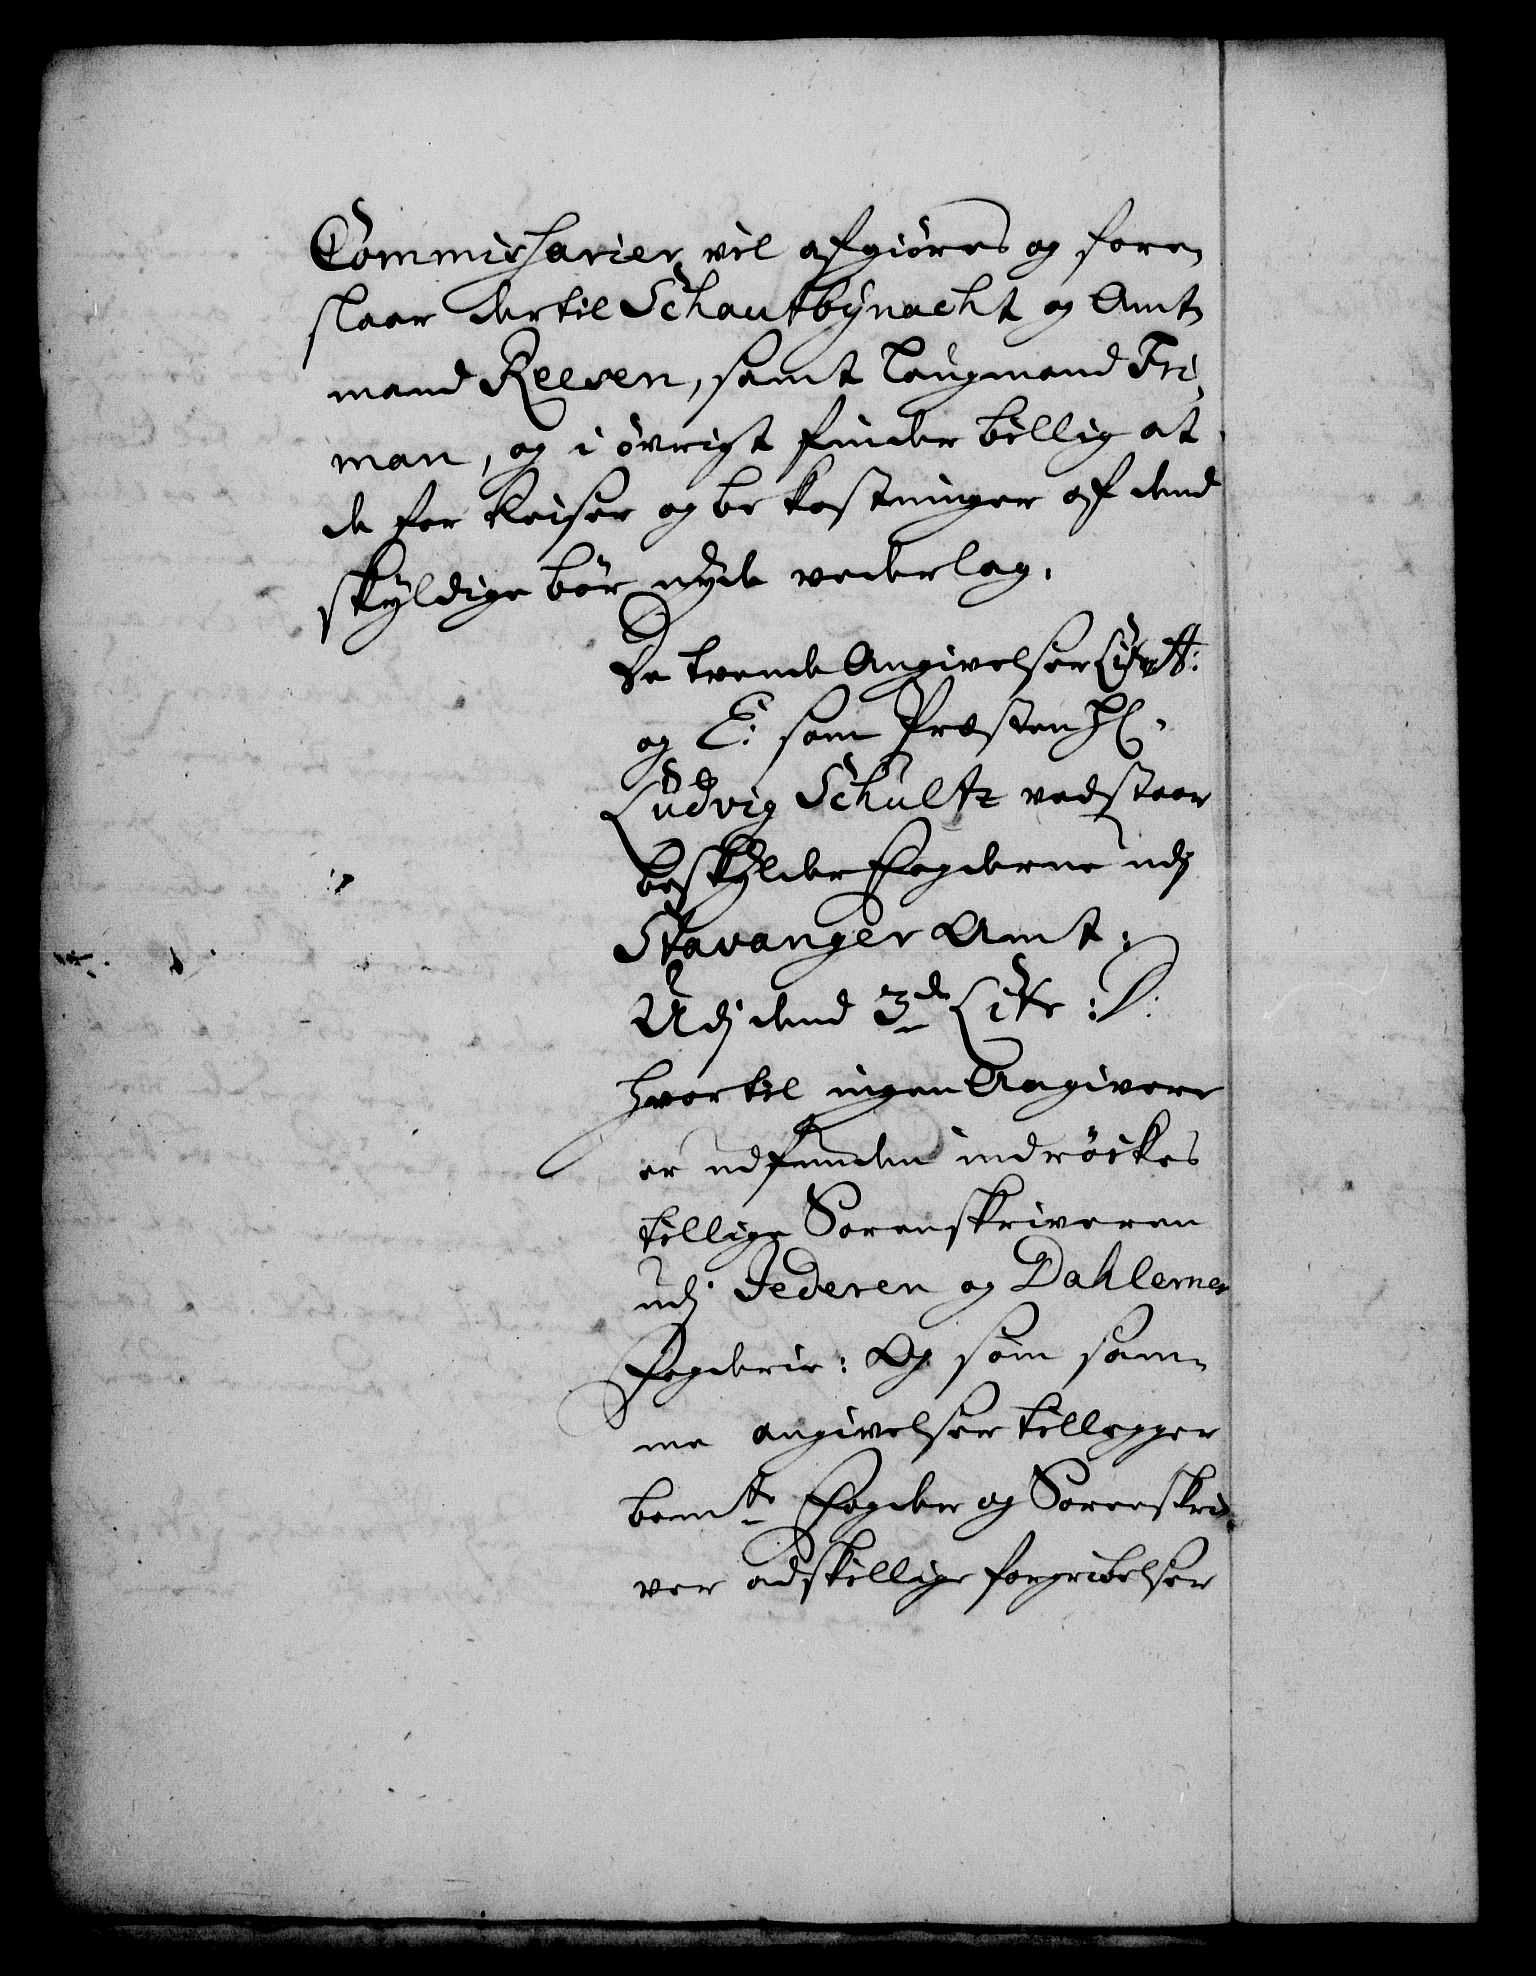 Commissarier vil afgiøres og fore,,
slaar dertil Schautbynacht og Amt,,
mand Reesen, samt Laugmand Fri,,
man, og i øvrigt finder billig at
de for Reiser og bekostninger af dend
skyldige bør nyde vederlag.
De tvende Angivelser Litr A:
og E: som Præsten Hr.
Ludvig Schultz vedstaar
beskylder Fogderne udj
Stavanger Amt:
Udj dend 3de Litr: D:
hvortil ingen Angivere
er udfunden indrøckes
tillige Sorenskriveren
udj Jederen og Dahlernes
Fogderie: Og som sam,,
me angivelser tillegger
bemte Fogder og Sorenskri,,
ver adskillige forgribelser